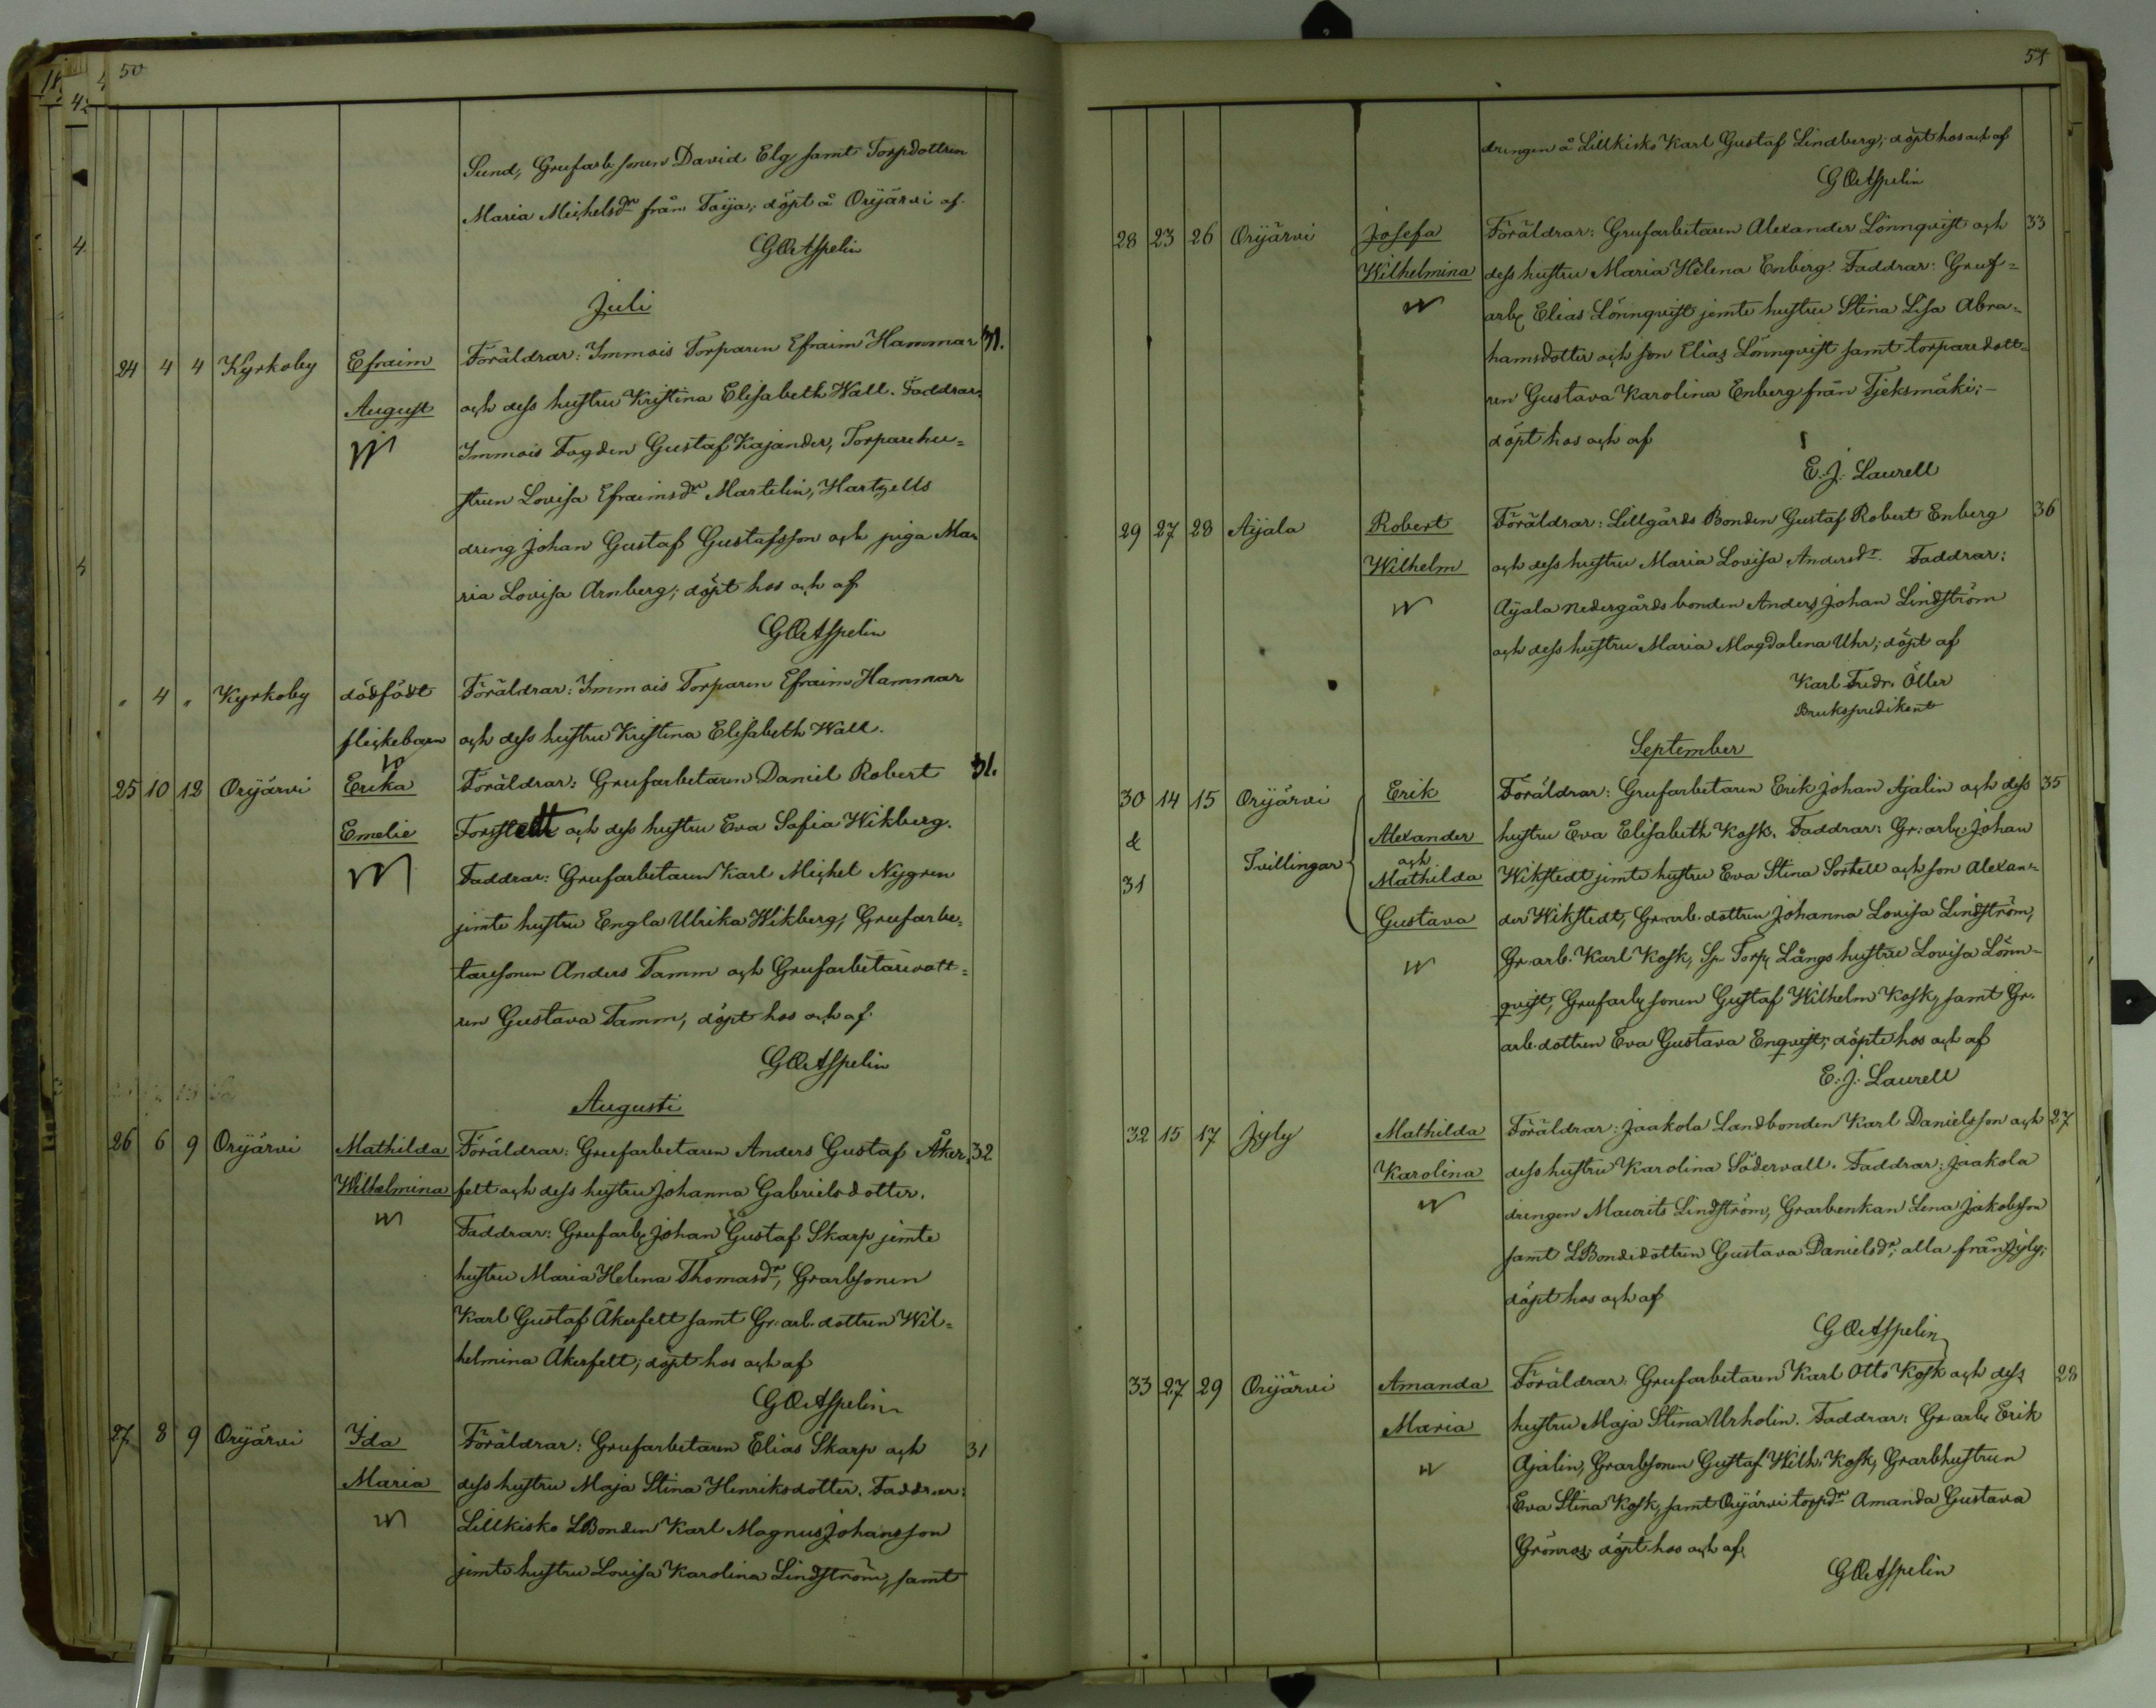 50
Sund, Grufarb. sonen David Elg samt Torpdottren
Maria Michelsdr från Taija; döpt å Orijärvi af
G O Aspelin
Juli
24 4 4 Kyrkoby Efraim Föräldrar: Immois Torparen Efraim Hammar 31.
August och dess hustru Kristina Elisabeth Wall. Faddrar:
Immois Fogden Gustaf Kajander, Torparehu=
strun Lovisa Efraimsdr Martelin, Hartzells
dreng Johan Gustaf Gustafsson och piga Ma=
ria Lovisa Arnberg; döpt hos och af
G O Aspelin
" 4 " Kyrkoby dödfödt Föräldrar: Immois Torparen Efraim Hammar
flickebarn och dess hustru Kristina Elisabeth Wall.
25 10 12 Orijärvi Erika Föräldrar: Grufarbetaren Daniel Robert 31.
Emelie Forstedt och dess hustru Eva Sofia Wikberg.
Faddrar: Grufarbetaren Karl Michel Nygren
jemte hustru Engla Ulrika Wikberg, Grufarbe=
taresonen Anders Tamm och Grufarbetaredott=
ren Gustava Tamm, döpt hos och af
G O Aspelin
Augusti
26 6 9 Orijärvi Mathilda Föräldrar: Grufarbetaren Anders Gustaf Åker= 32
Wilhelmina felt och dess hustru Johanna Gabrielsdotter.
Faddrar: Grufarb. Johan Gustaf Skarp jemte
hustru Maria Helena Thomasdr, Grarbsonen
Karl Gustaf Åkerfelt samt Gr. arb. dottren Wil=
helmina Åkerfelt; döpt hos och af
G O Aspelin
27 8 9 Orijärvi Ida Föräldrar: Grufarbetaren Elias Skarp och 31
Maria dess hustru Maja Stina Henriksdotter. Faddrar:
Lillkisko LBonden Karl Magnus Johansson
jemte hustru Lovisa Karolina Lindström, samt
51
drengen å Lillkisko Karl Gustaf Lindberg; döpt hos och af
G O Aspelin
28 23 26 Orijärvi Josefa Föräldrar: Grufarbetaren Alexander Lönnqvist och 33
Wilhelmina dess hustru Maria Helena Enberg. Faddrar: Gruf=
arb. Elias Lönnqvist jemte hustru Stina Lisa Abra=
hamsdotter och son Elias Lönnqvist samt torparedott=
ren Gustava Karolina Enberg från Tjeksmäki; –
döpt hos och af
E. J. Laurell
29 27 28 Aijala Robert Föräldrar: Lillgårds Bonden Gustaf Robert Enberg 36
Wilhelm och dess hustru Maria Lovisa Andersdr. Faddrar:
Aijala nedergårds bonden Anders Johan Lindström
och dess hustru Maria Magdalena Uhr; döpt af
Karl Fredr. Öller
Brukspredikant
September
30 14 15 Orijärvi Erik Föräldrar: Grufarbetaren Erik Johan Ajalin och dess 35
& Alexander hustru Eva Elisabeth Kosk. Faddrar: Gr. arb. Johan
31 Tvillingar och Mathilda Wikstedt jemte hustru Eva Stina Sortell och son Alexan=
Gustava der Wikstedt, Gr. arb. dottren Johanna Lovisa Lindström,
Gr. arb. Karl Kosk, Torp. Långs hustru Lovisa Lönn=
qvist, Grufarb. sonen Gustaf Wilhelm Kosk, samt Gr.
arb. dottren Eva Gustava Enqvist; döpte hos och af
E. J. Laurell
32 15 17 Jyly Mathilda Föräldrar: Jaakola Landbonden Karl Danielsson och 27
Karolina dess hustru Karolina Södervall. Faddrar: Jaakola
drengen Maurits Lindström, Grarbenkan Lena Jakobsson
samt LBondedottren Gustava Danielsdr; alla från Jyly;
döpt hos och af
G O Aspelin
33 27 29 Orijärvi Amanda Föräldrar: Grufarbetaren Karl Otto Kosk och dess 28
Maria hustru Maja Stina Urholin. Faddrar: Gr. arb. Erik
Ajalin, Grarbsonen Gustaf Wilh. Kosk, Grarbhustrun
Eva Stina Kosk, samt Orijärvi torpdr Amanda Gustava
Grönros; döpt hos och af
G O Aspelin